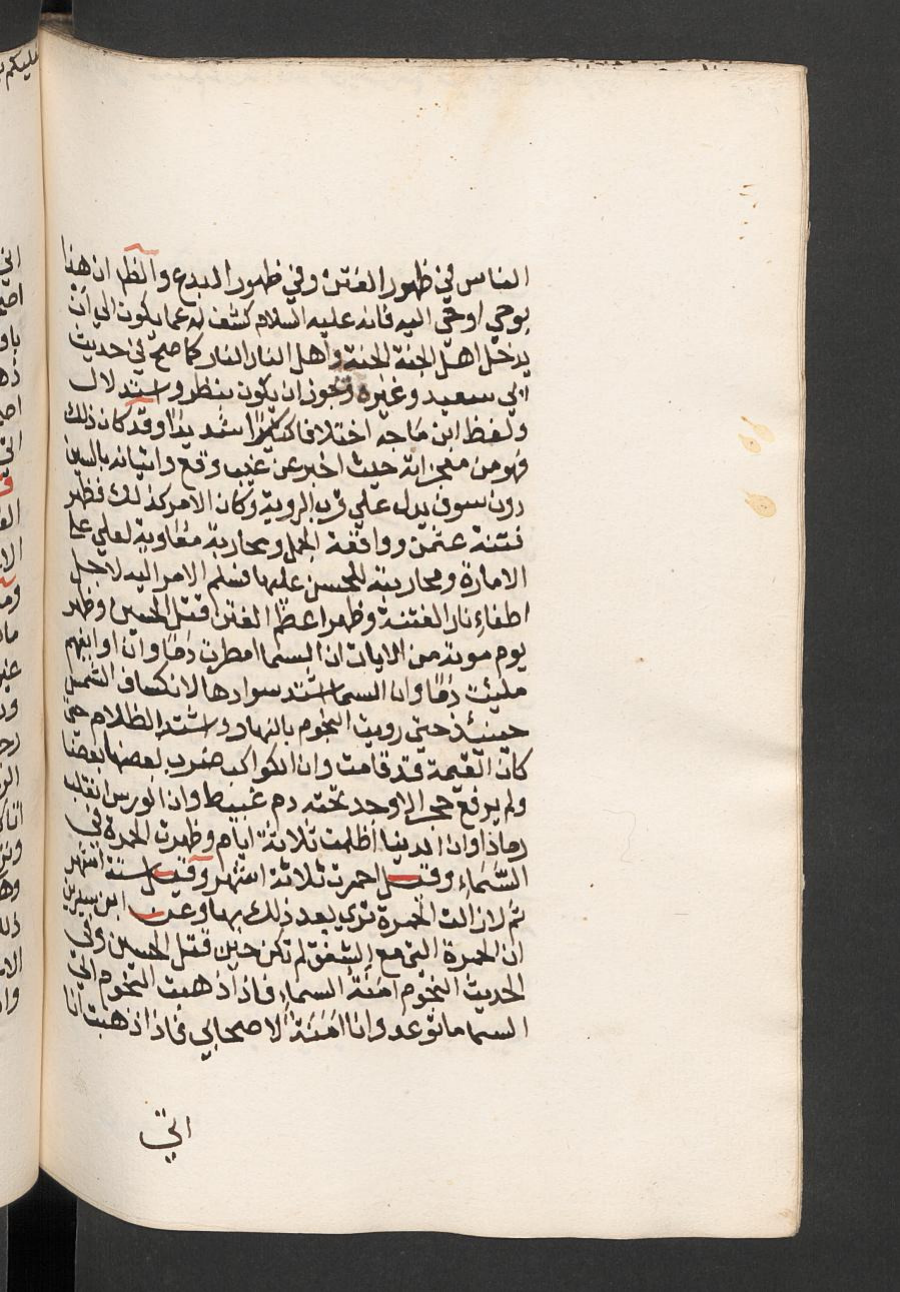 الناس في ظهور الفتن وفي ظهور البدع والظا ان هذا
يوحي اوحي اليه فانه عليه السلام كشف له عما يكون الي ان
يدخل اهل الجنة الجنة واهل النار النار كما صح في حديث
ابي سعيد وغيره ويجوز ان يكون بنظر واستدلال
ولفظ ابن ماجه اختلافا كثيرا شديدا وقد كان ذلك
فهو من معجزاته حيث اخبر عن غيب وقع واتيانه بالسين
دون سوف يدل علي قرب الروية وكان الامر كذلك فظهر
فتنة عثمن وواقعة الجمل ومحاربة معاوية لعلي علي
الامارة ومحاربته للحسن عليها فسلم الامر اليه لاجل
اطفاء نار الفتنة وظهر اعظم الفتن قتل الحسين وظهر
يوم موته من الايات ان السما امطرت دما وان اوانيهم
مليئت دما وان السما اشتد سوادها لانكساف الشمس
حينئذ حتي رويت النجوم بالنهار واشتد الظلام حتي
كان القيمة قد قامت وان الكواكب ضرب بعضها بعضا
ولم يرفع حجر الا وجد تحته دم غبيط وان الورس انقلب
رمادا وان الدنيا اظلمت ثلاثة ايام وظهرت الحمرة في
السماء وقيل احمرت ثلاثة اشهر وقيل ستة اشهر
ثم لا زالت الحمرة تري بعد ذلك بها وعن ابن سيرين
ان الحمرة التي مع الشفق لم تكن حين قتل الحسين وفي
الحديث النجوم امنة السماء فاذا ذهبت النجوم اتي
السما ما توعد وانا امنة لاصحابي فاذا ذهبت انا
اتي